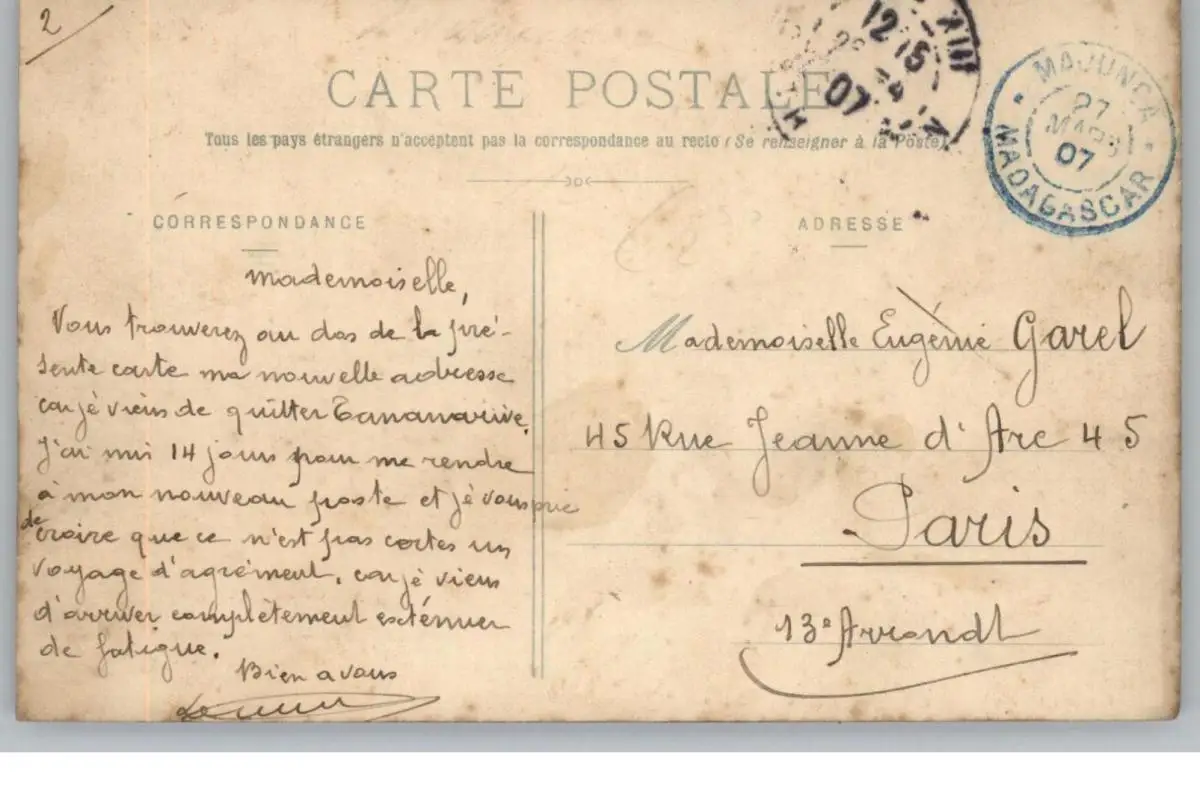 2
CARTE POSTALE
Tous les pays étrangers n'acceptent pas la correspondance au recto (Se renseigner à la Poste)
12 15
XIII
07
MAJUNGA
27
MARS
07
MADAGASCAR
CORRESPONDANCE
Mademoiselle,
Vous trouverez au dos de la pré-
sente carte ma nouvelle adresse
car jè viens de quitter Tananarive.
J'ai mis 14 jours pour me rendre
à mon nouveau poste et jè vous prie
de croire que ce n'est pas certes un
voyage d'agrément, car jè viens
d'arriver complètement exténuer
de fatigue.
Bien a vous
ADRESSE
Mademoiselle Eugénie Garel
45 Rue Jeanne d'Arc 45
Paris
13e Arrondt